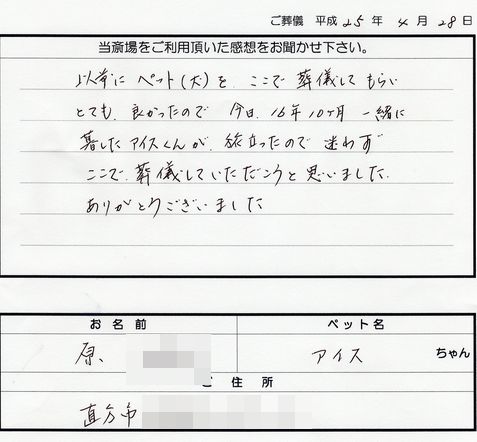 ご葬儀 平成 25 年 4 月 28 日
当斎場をご利用頂いた感想をお聞かせ下さい。
以前に ペット(犬)を、ここで 葬儀して もらい
とても、良かったので 今日、16年10ヶ月 一緒に
暮した アイスくんが、旅立ったので 迷わず
ここで、葬儀していただこうと思いました。
ありがとうございました
お名前 ペット名
原、 アイス ちゃん
ご住所
直方市